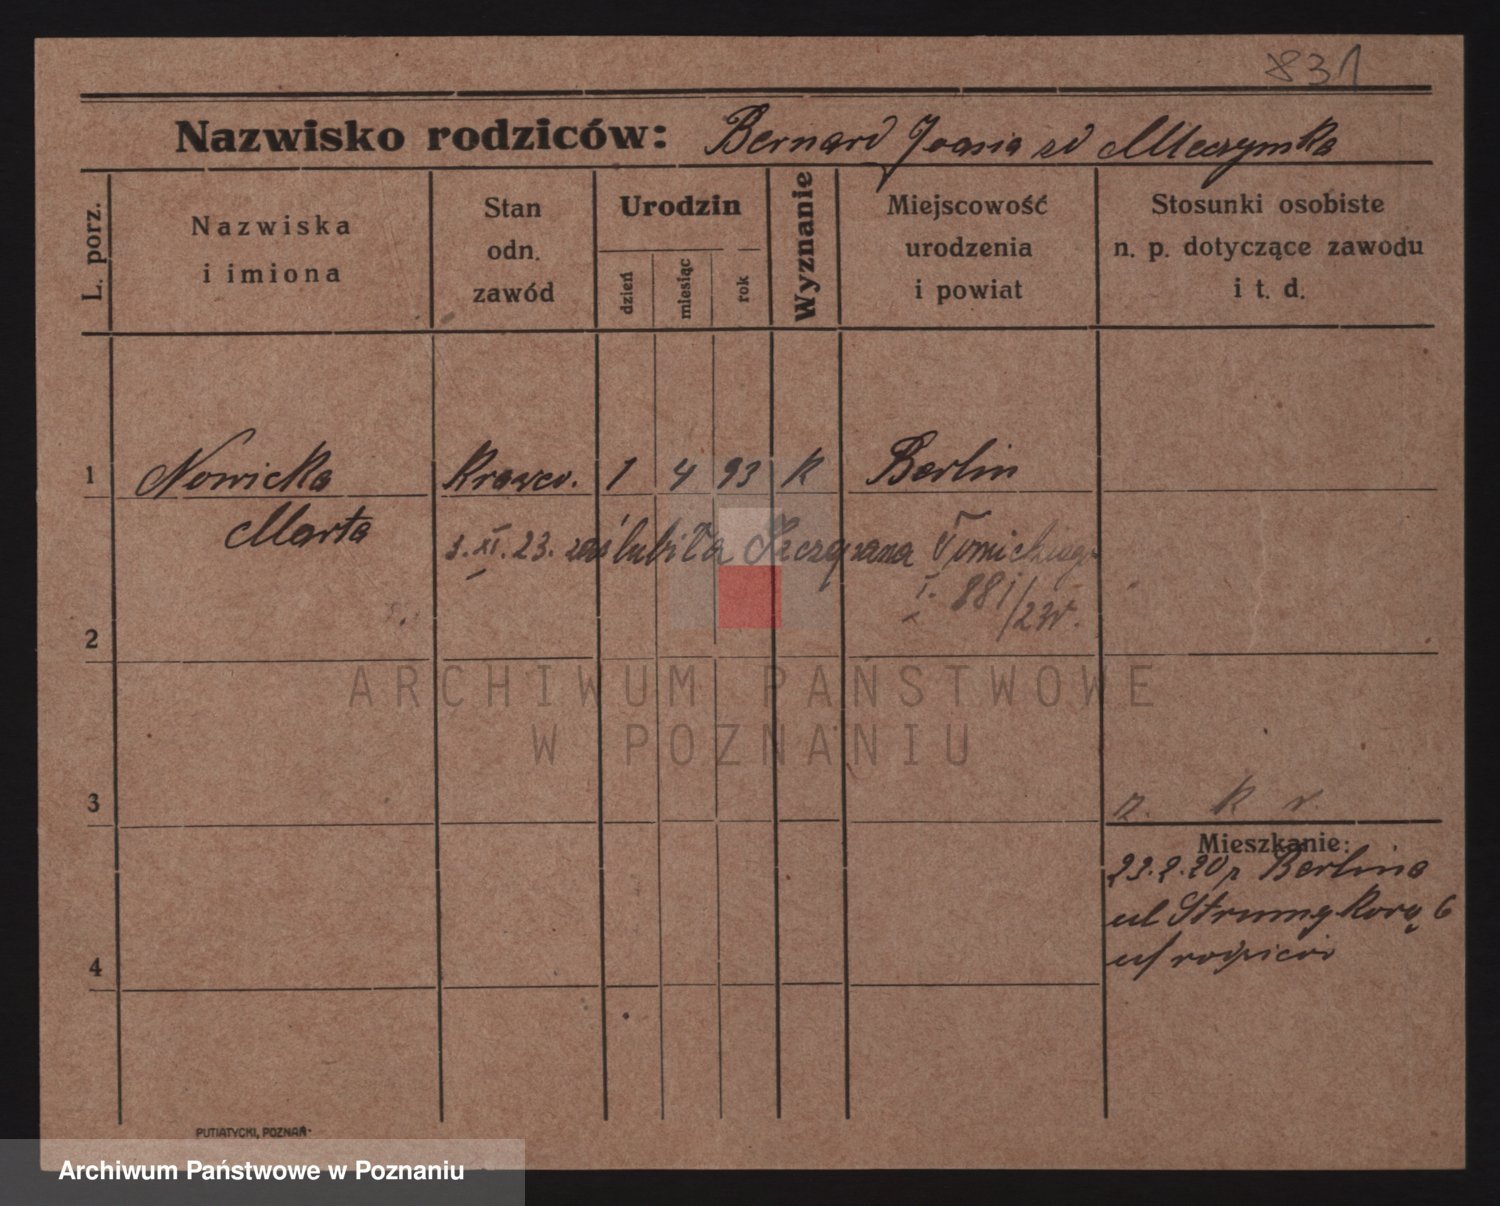 831
Nazwisko rodziców: Bernard Joasia zd Meczynska
L. porz.
Nazwiska
i imiona
Stan
odn.
zawód
Urodzin
dzień
miesiąc
rok
Wyznanie
Miejscowość
urodzenia
i powiat
Stosunki osobiste
n. p. dotyczące zawodu
i t. d.
1 Nowicka Krawco. 1 4 93 K Berlin
Marta
3. XI. 23. zaślubiła Szczepana Tomickiego
I. 881/23r.
2
3
Z. K r.
Mieszkanie:
23.2.20 z Berlina
ul Strumykową 6
u/rodziców
4
PUTIATYCKI, POZNAŃ
ARCHIWUM PAŃSTWOWE
W POZNANIU
Archiwum Państwowe w Poznaniu